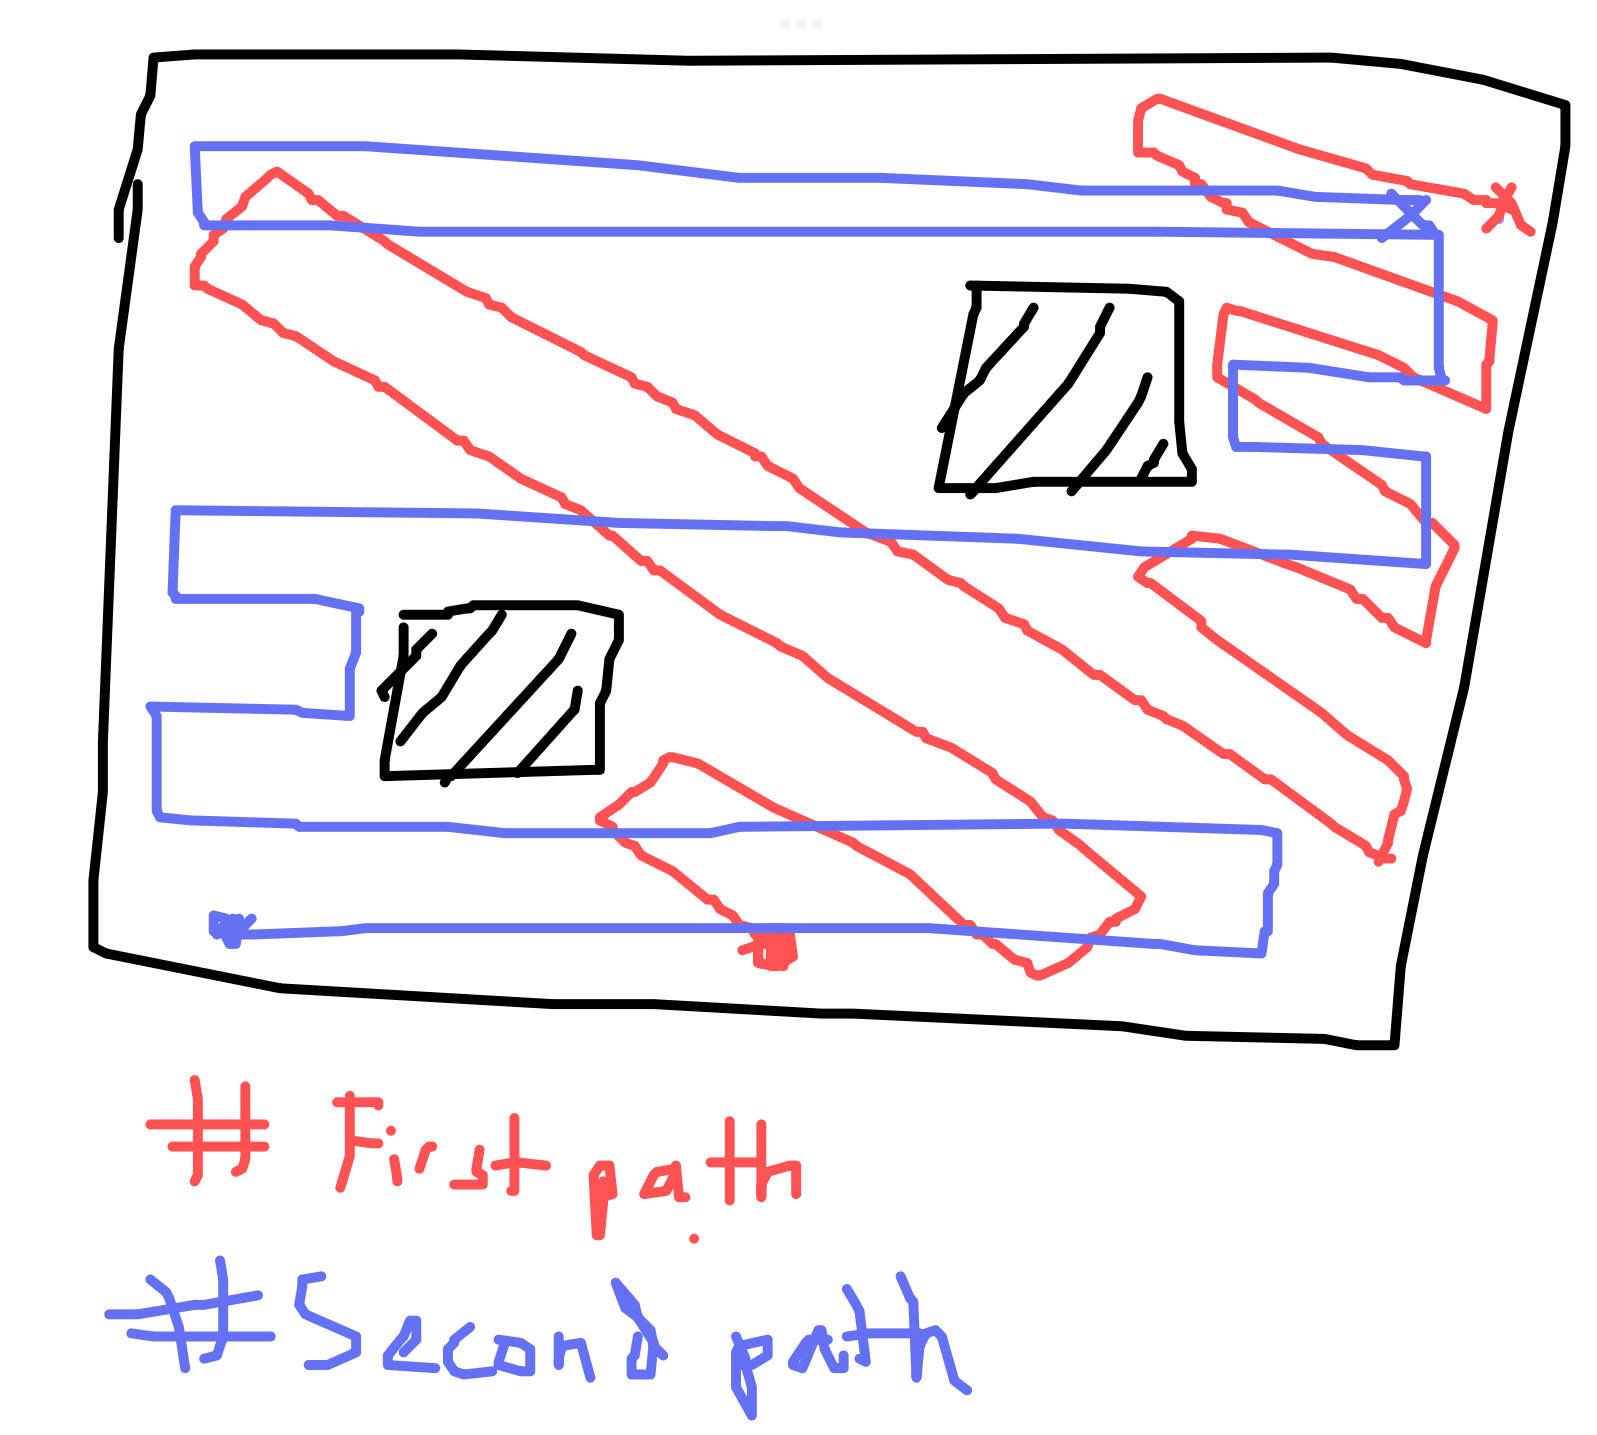 # First path
# Second path